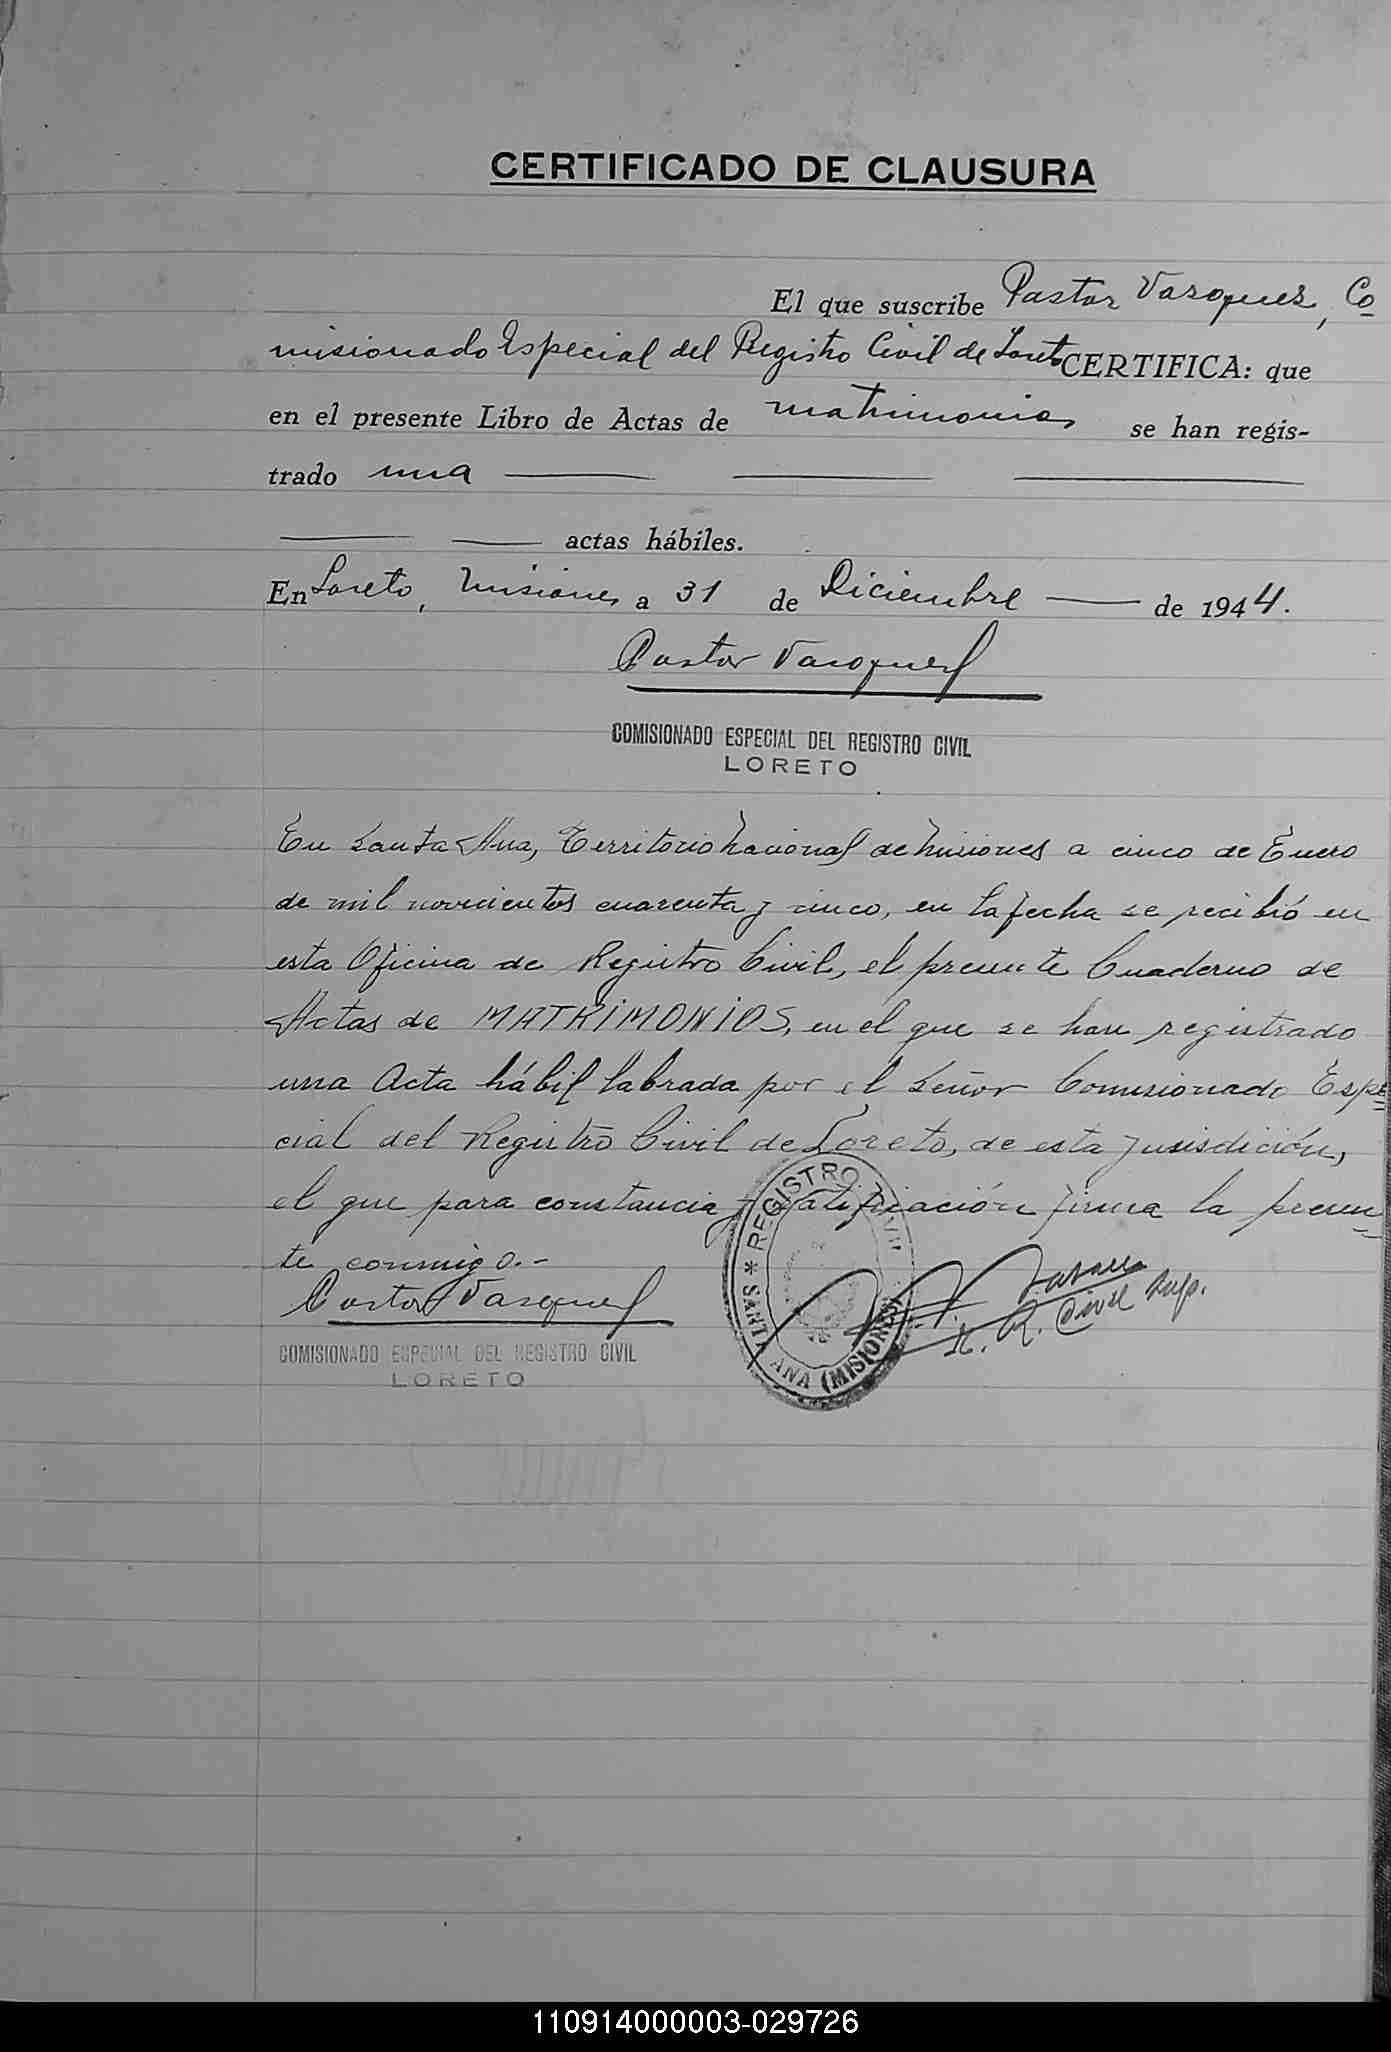 CERTIFICADO DE CLAUSURA
El que suscribe Pastor Vasquez, Co
misionado Especial del Registro Civil de Loreto CERTIFICA: que
en el presente Libro de Actas de matrimonios se han regis-
trado una
actas hábiles.
En Loreto, Misiones a 31 de Diciembre de 1944.
Pastor Vasquez
COMISIONADO ESPECIAL DEL REGISTRO CIVIL
LORETO
En Santa Ana, Territorio Nacional de Misiones a cinco de Enero
de mil novecientos cuarenta y cinco, en la fecha se recibió en
esta Oficina de Registro Civil, el presente Cuaderno de
Actas de MATRIMONIOS, en el que se han registrado
una Acta hábil labrada por el Señor Comisionado Espe=
cial del Registro Civil de Loreto, de esta jurisdición,
el que para constancia y ratificación firma la presen=
te conmigo.-
Pastor Vasquez
COMISIONADO ESPECIAL DEL REGISTRO CIVIL
LORETO
* REGISTRO CIVIL
SANTA ANA (MISIONES)
R. Civil Sup.
110914000003-029726